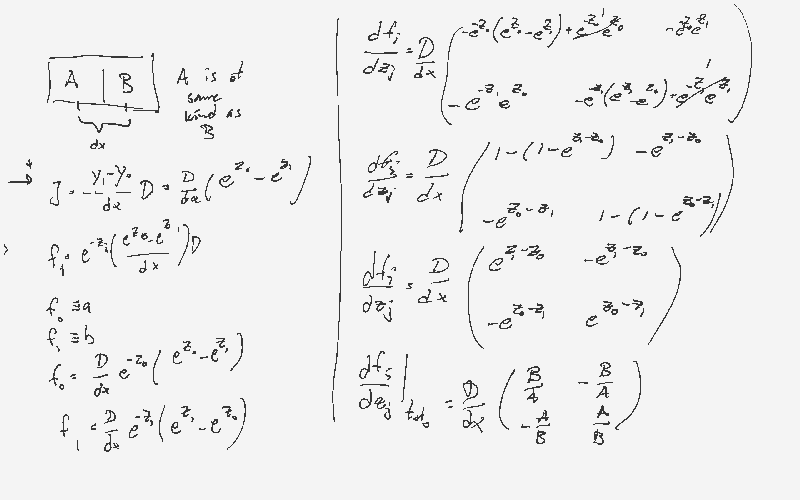 A B
dx
A is of
some
kind as
B
J = -\frac{y_1 - y_0}{dx} D = \frac{D}{dx} ( e^{z_0} - e^{z_1} )
f_j = e^{-z_j} ( \frac{e^{z_0} - e^{z_1}}{dx} ) D
f_0 ≡ a
f_1 ≡ b
f_0 = \frac{D}{dx} e^{-z_0} ( e^{z_0} - e^{z_1} )
f_1 = \frac{D}{dx} e^{-z_1} ( e^{z_1} - e^{z_0} )
\frac{df_i}{dz_j} = \frac{D}{dx} ( -e^{-z_0} ( e^{z_0} - e^{z_1} ) + e^{-z_0} e^{z_0} 1   -e^{-z_0} e^{z_1}
-e^{-z_1} e^{z_0}   -e^{-z_1} ( e^{z_1} - e^{z_0} ) + e^{-z_1} e^{z_1} 1 )
\frac{df_i}{dz_j} = \frac{D}{dx} ( 1 - ( 1 - e^{z_1 - z_0} )   -e^{z_1 - z_0}
-e^{z_0 - z_1}   1 - ( 1 - e^{z_0 - z_1} ) )
\frac{df_i}{dz_j} = \frac{D}{dx} ( e^{z_1 - z_0}   -e^{z_1 - z_0}
-e^{z_0 - z_1}   e^{z_0 - z_1} )
\frac{df_i}{dz_j} |_{t=t_0} = \frac{D}{dx} ( \frac{B}{A}   -\frac{B}{A}
-\frac{A}{B}   \frac{A}{B} )